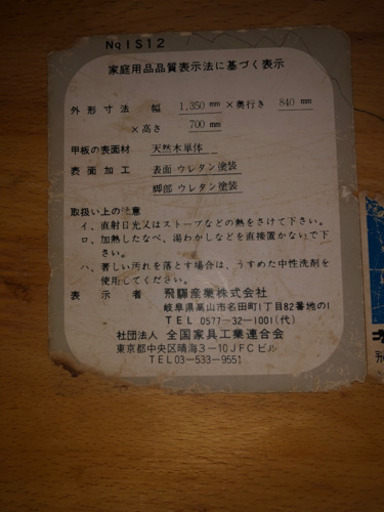 No IS12
家庭用品品質表示法に基づく表示
外形寸法 幅 1,350 mm × 奥行き 840 mm
× 高さ 700 mm
甲板の表面材 天然木単体
表面加工 表面 ウレタン塗装
脚部 ウレタン塗装
取扱い上の注意
イ、直射日光又はストーブなどの熱をさけて下さい。
ロ、加熱したなべ、湯わかしなどを直接置かないで下
さい。
ハ、著しい汚れを落とす場合は、うすめた中性洗剤を
使用してください。
表示者 飛驒産業株式会社
岐阜県高山市名田町1丁目82番地の1
TEL 0577-32-1001(代)
社団法人 全国家具工業連合会
東京都中央区晴海3-10JFCビル
TEL03-533-9551